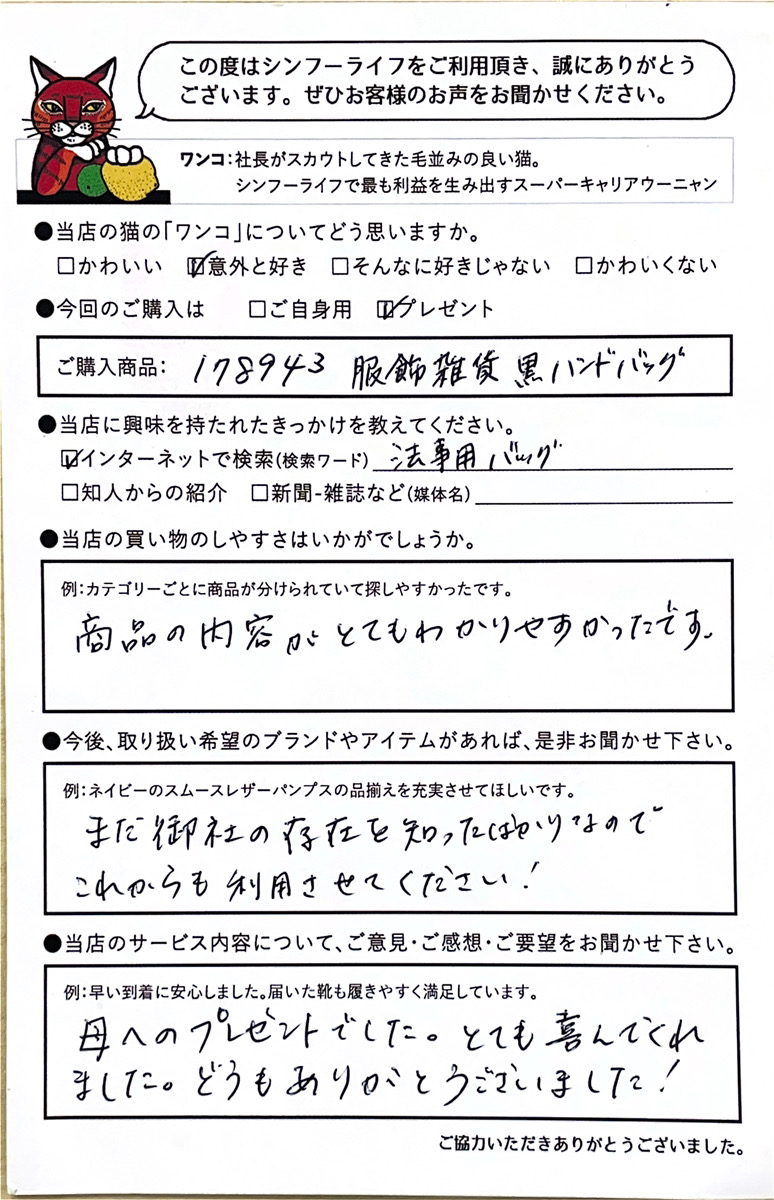 この度はシンフーライフをご利用頂き、誠にありがとう
ございます。ぜひお客様のお声をお聞かせください。
ワンコ：社長がスカウトしてきた毛並みの良い猫。
シンフーライフで最も利益を生み出すスーパーキャリアウーニャン
●当店の猫の「ワンコ」についてどう思いますか。
□かわいい ☑意外と好き □そんなに好きじゃない □かわいくない
●今回のご購入は □ご自身用 ☑プレゼント
ご購入商品： 178943 服飾雑貨 黒ハンドバッグ
●当店に興味を持たれたきっかけを教えてください。
☑インターネットで検索(検索ワード) 法事用 バッグ
□知人からの紹介 □新聞-雑誌など(媒体名)
●当店の買い物のしやすさはいかがでしょうか。
例：カテゴリーごとに商品が分けられていて探しやすかったです。
商品の内容がとてもわかりやすかったです。
●今後、取り扱い希望のブランドやアイテムがあれば、是非お聞かせ下さい。
例：ネイビーのスムースレザーパンプスの品揃えを充実させてほしいです。
まだ御社の存在を知ったばかりなので
これからも利用させてください！
●当店のサービス内容について、ご意見・ご感想・ご要望をお聞かせ下さい。
例：早い到着に安心しました。届いた靴も履きやすく満足しています。
母へのプレゼントでした。とても喜んでくれ
ました。どうもありがとうございました！
ご協力いただきありがとうございました。